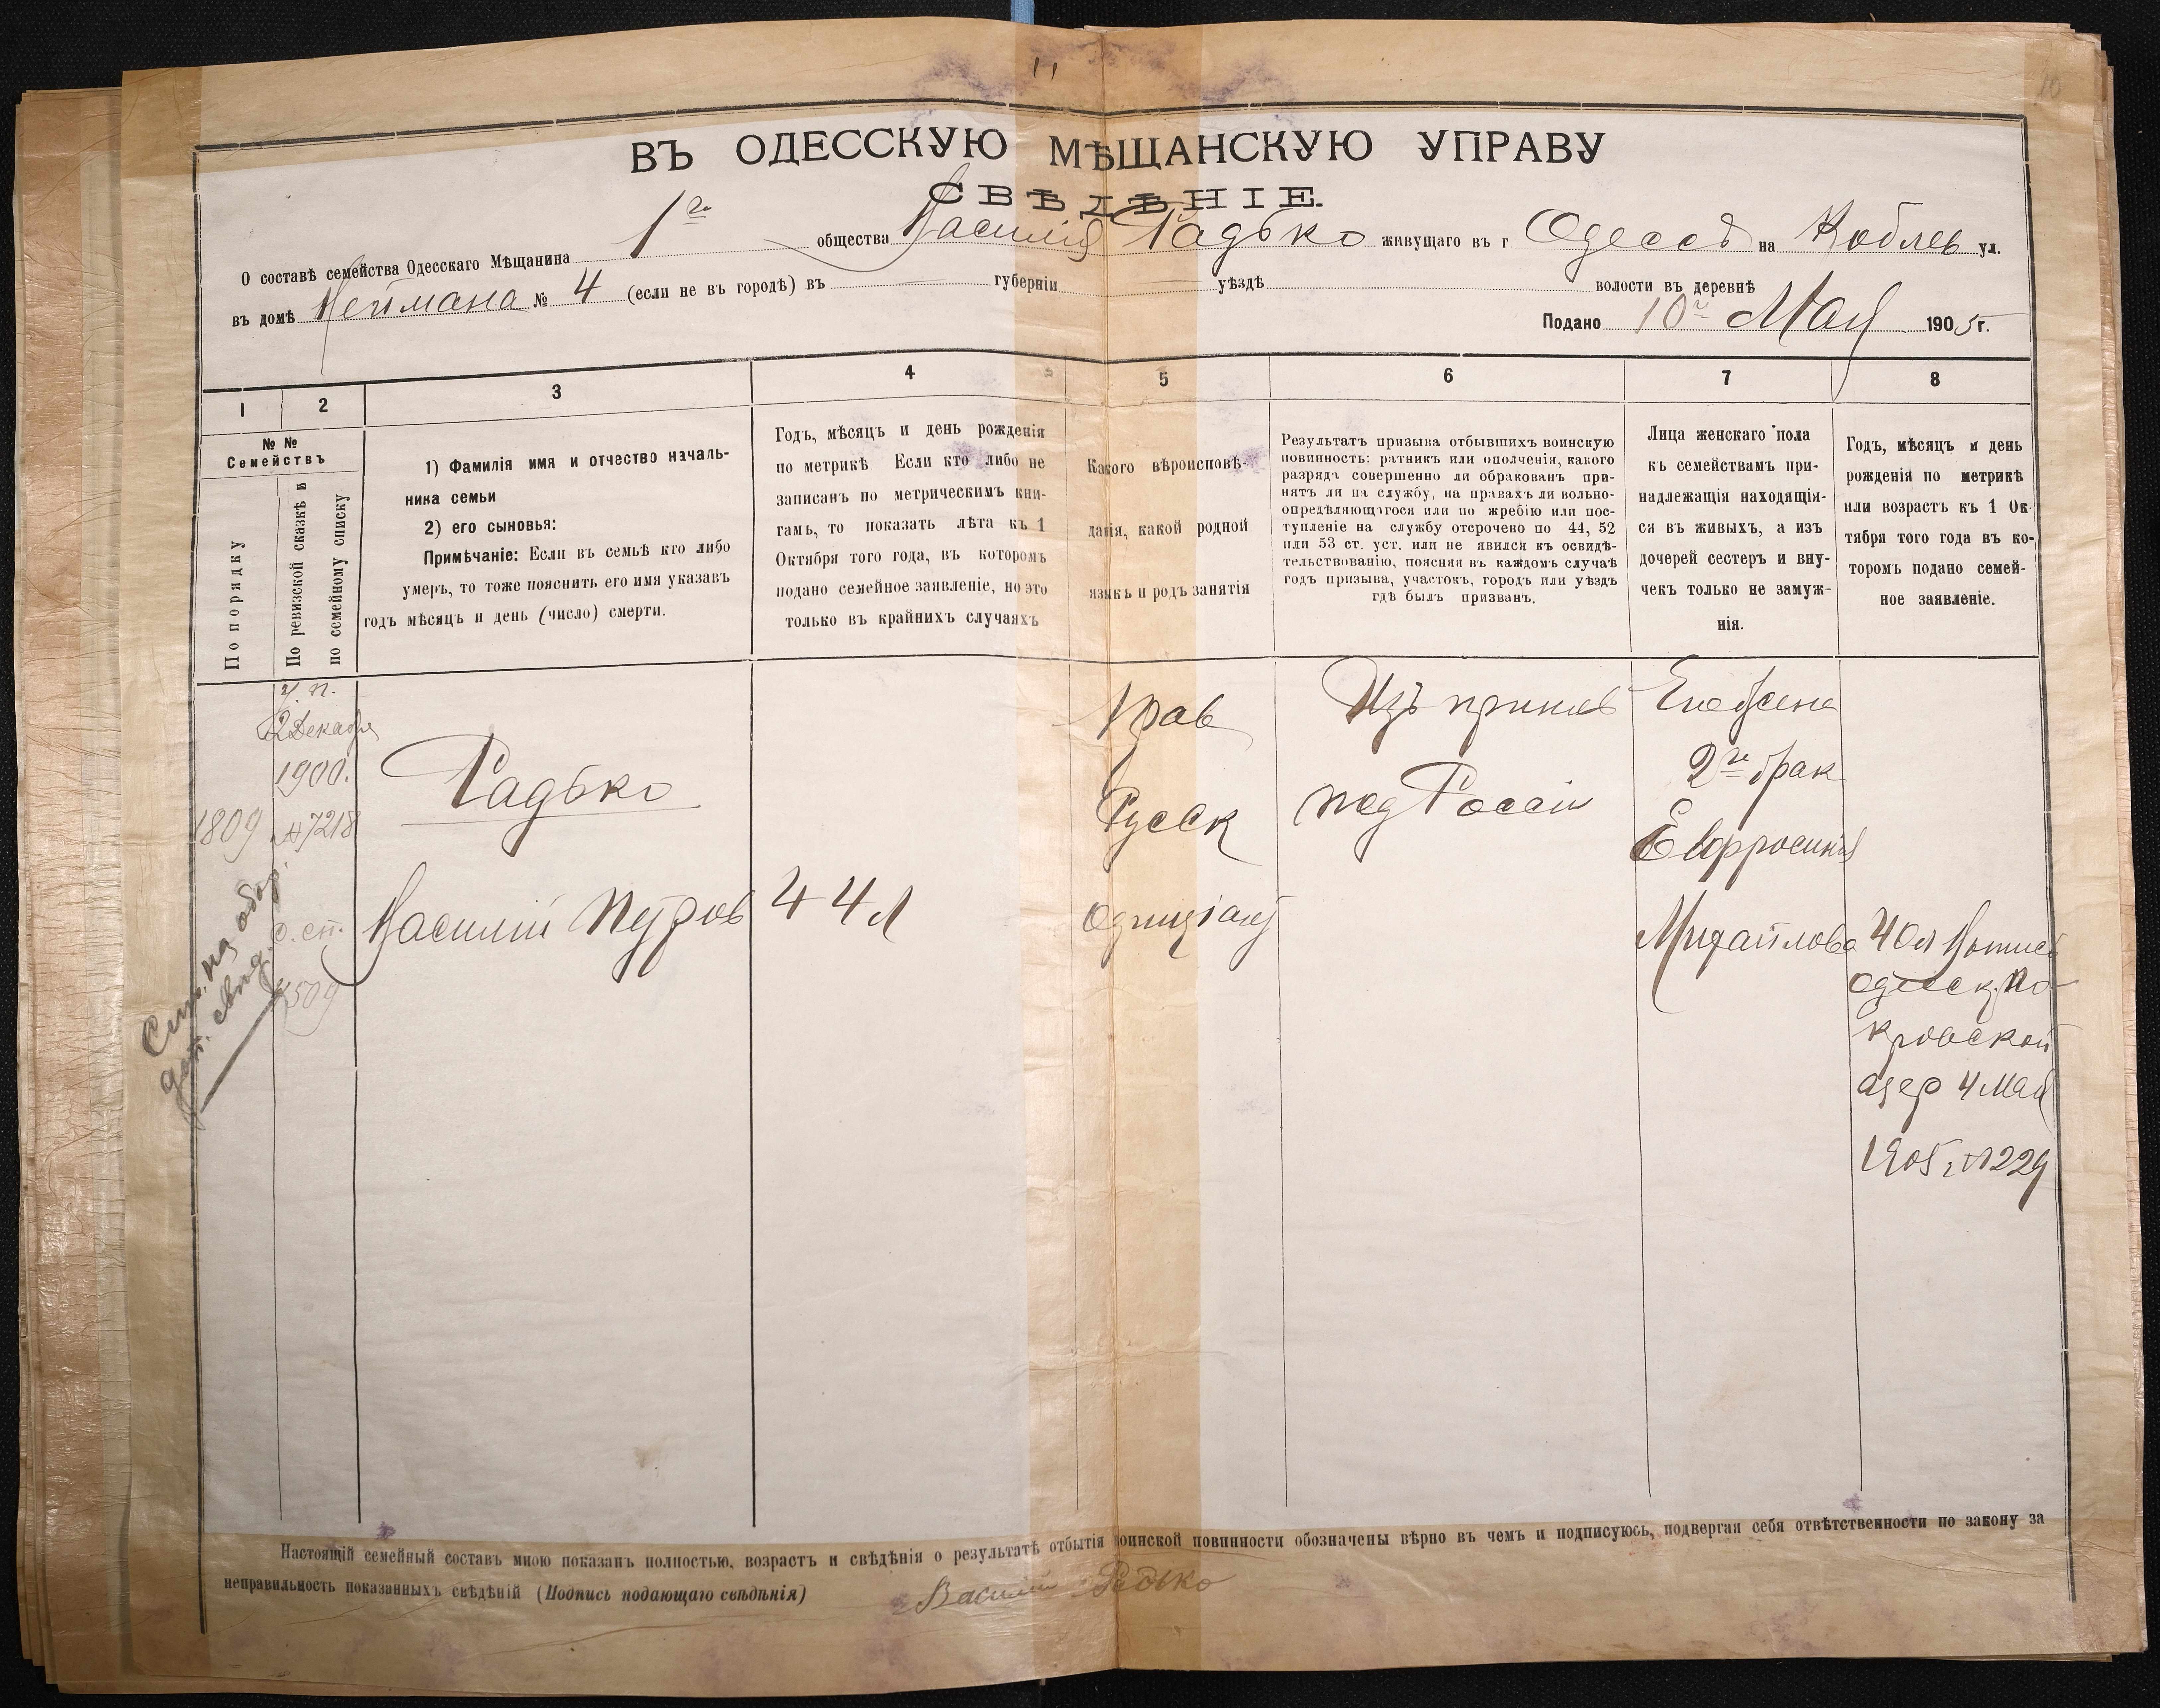 11
10
ВЪ ОДЕССКУЮ МѢЩАНСКУЮ УПРАВУ
СВѢДѢНІЕ.
О составѣ семейства Одесскаго Мѣщанина 1го общества Василія Радько живущаго въ г Одессѣ на Коблев ул.
въ домѣ Неймана № 4 (если не въ городѣ) въ губерніи уѣздѣ волости въ деревнѣ
Подано 10го Мая 1905 г.
1
2
3
4
5
6
7
8
№ №
Семействъ
По порядку
По ревизской сказкѣ и
по семейному списку
1) Фамилія имя и отчество началь-
ника семьи
2) его сыновья:
Примѣчаніе: Если въ семьѣ кто либо
умеръ, то тоже пояснить его имя указавъ
годъ мѣсяцъ и день (число) смерти.
Годъ, мѣсяцъ и день рожденія
по метрикѣ Если кто либо не
записанъ по метрическимъ кни-
гамъ, то показать лѣта къ 1
Октября того года, въ которомъ
подано семейное заявленіе, но это
только въ крайнихъ случаяхъ
Какого вѣроисповѣ-
данія, какой родной
языкъ и родъ занятія
Результатъ призыва отбывшихъ воинскую
повинность: ратникъ или ополченія, какого
разряда совершенно ли обракованъ при-
нятъ ли на службу, на правахъ ли вольно-
опредѣляющагося или по жребію или пос-
тупленіе на службу отсрочено по 44, 52
или 53 ст. уст. или не явился къ освидѣ-
тельствованію, поясняя въ каждомъ случаѣ
годъ призыва, участокъ, городъ или уѣздъ
гдѣ былъ призванъ.
Лица женскаго пола
къ семействамъ при-
надлежащія находящія-
ся въ живыхъ, а изъ
дочерей сестеръ и вну-
чекъ только не замуж-
нія.
Годъ, мѣсяцъ и день
рожденія по метрикѣ
или возрастъ къ 1 Ок-
тября того года въ ко-
торомъ подано семей-
ное заявленіе.
у. п.
2 Декабря
1900.
1809 №7218
с. сп.
1509
Радько
Василій Петров 44 л
Прав
Русск
Изъ принев
под Россіи
Его жена
2го брак
Евфросинія
Михайлова 40 л
Одесск. По-
кровской
цер 4 Мая
1905 г №229
Настоящій семейный составъ мною показанъ полностью, возрастъ и свѣдѣнія о результатѣ отбытія воинской повинности обозначены вѣрно въ чемъ и подписуюсь, подвергая себя отвѣтственности по закону за
неправильность показанныхъ свѣдѣній (Подпись подающаго свѣдѣнія) Василій Радько